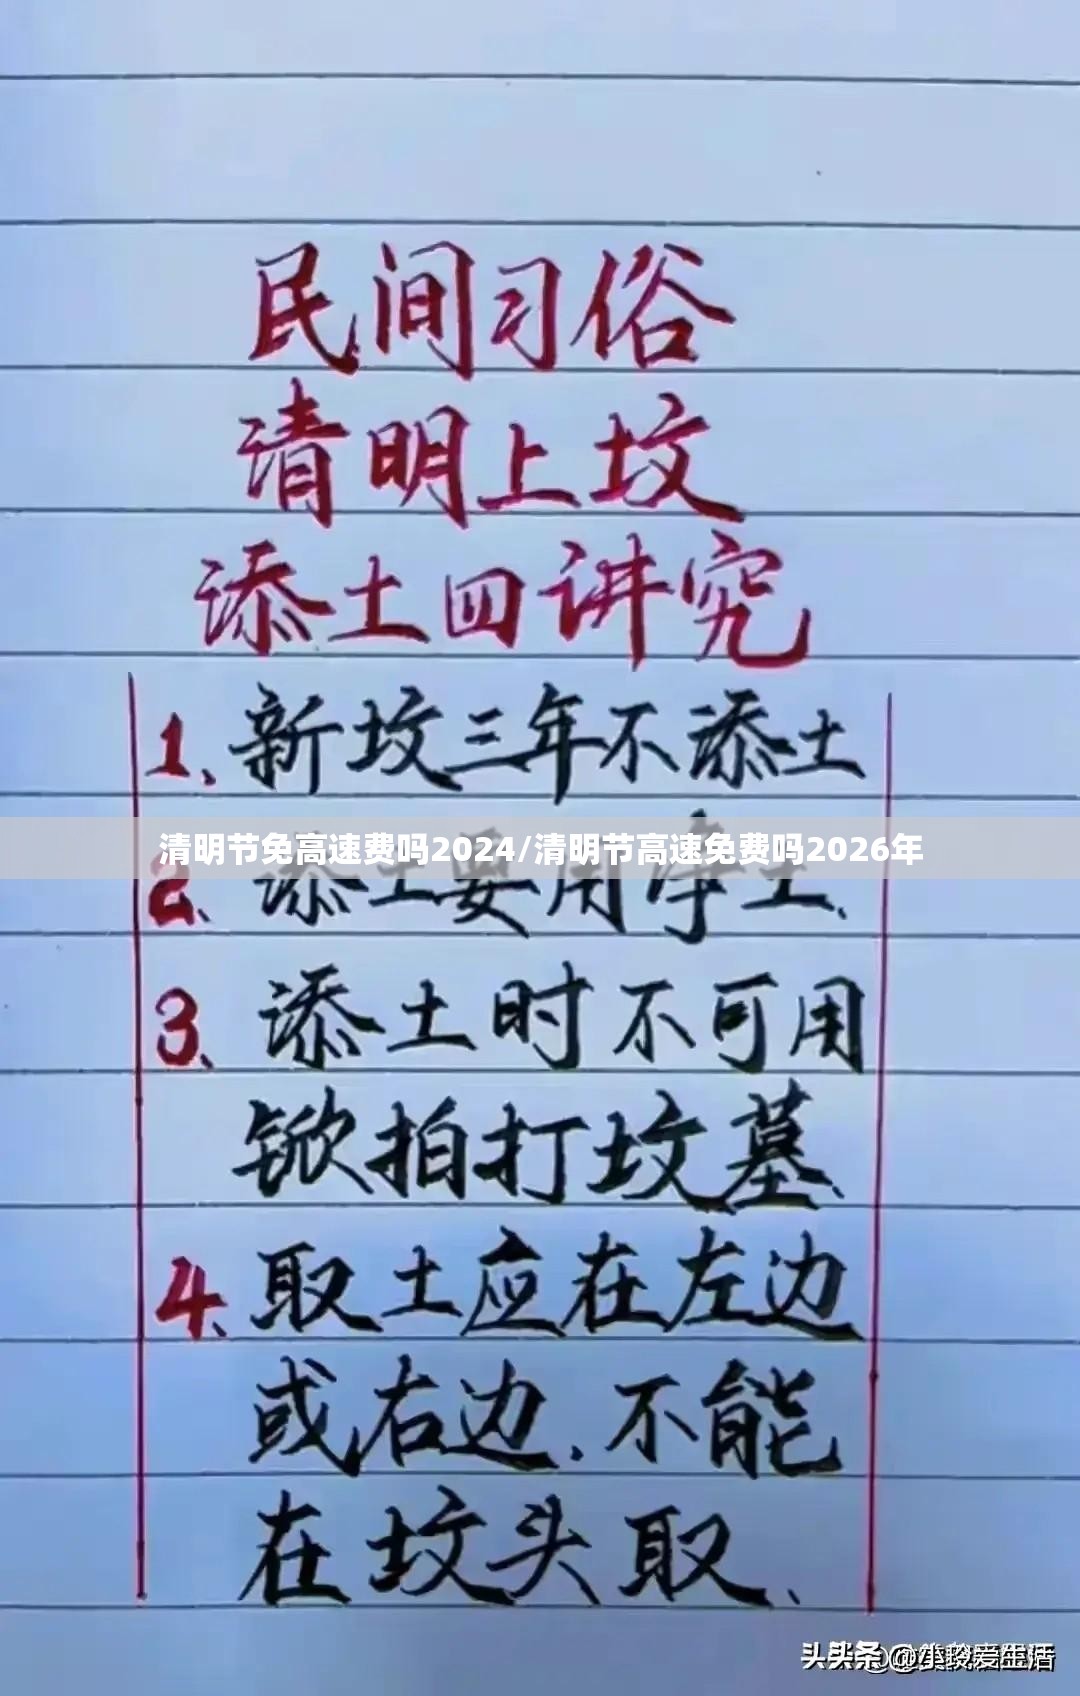 民间习俗
清明上坟
添土四讲究
1、新坟三年不添土
清明节免高速费吗2024/清明节高速免费吗2026年
2、添土要用净土、
3、添土时不可用
锨拍打坟墓、
4、取土应在左边
或右边.不能
在坟头取、
头条 @小敗爱生活